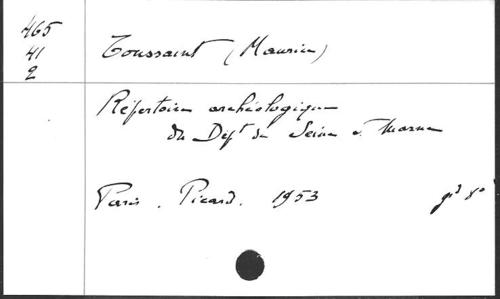 465
41
2
Toussaint (Maurice)
Répertoire archéologique
du Dépt de Seine & Marne
Paris. Picard. 1953 gd 8o